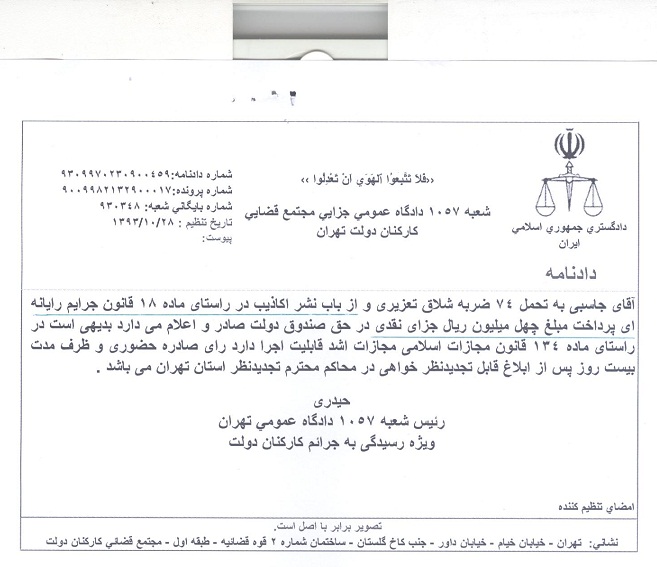 دادگستري جمهوري اسلامي
ایران
‹‹فَلا تَتَّبِعوُا اَلهَوَي اَنْ تَعْدِلُوا ››
شعبه ۱۰۵۷ دادگاه عمومي جزايي مجتمع قضايي
کارکنان دولت تهران
شماره دادنامه:۹۳۰۹۹۷۰۲۳۰۹۰۰۴۵۹
شماره پرونده:۹۰۰۹۹۸۲۱۳۲۹۰۰۰۱۷
شماره بايگاني شعبه: ۹۳۰۳۴۸
تاریخ تنظیم : ۱۳۹۳/۱۰/۲۸
پیوست:
دادنامه
آقای جاسبی به تحمل ۷۴ ضربه شلاق تعزیری و از باب نشر اکاذیب در راستای ماده ۱۸ قانون جرایم رایانه
ای پرداخت مبلغ چهل میلیون ریال جزای نقدی در حق صندوق دولت صادر و اعلام می دارد بدیهی است در
راستای ماده ۱۳۴ قانون مجازات اسلامی مجازات اشد قابلیت اجرا دارد رای صادره حضوری و ظرف مدت
بیست روز پس از ابلاغ قابل تجدیدنظر خواهی در محاکم محترم تجدیدنظر استان تهران می باشد .
حیدری
رئیس شعبه ۱۰۵۷ دادگاه عمومي تهران
ویژه رسیدگی به جرائم کارکنان دولت
امضاي تنظیم کننده
تصویر برابر با اصل است.
نشاني: تهران - خیابان خیام - خیابان داور - جنب کاخ گلستان - ساختمان شماره ۲ قوه قضائیه - طبقه اول - مجتمع قضائي کارکنان دولت